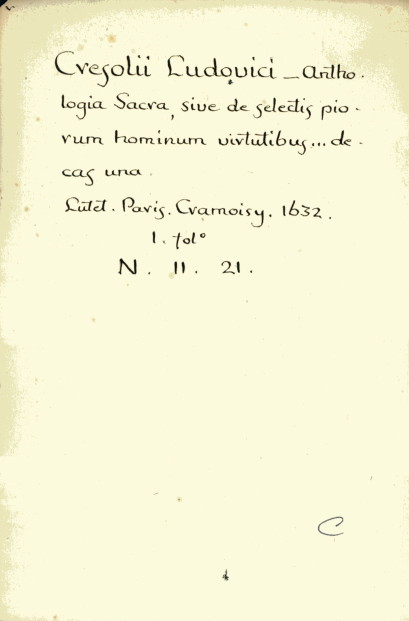 Cresolii Ludovici _ Antho.
logia Sacra, sive de selectis pio-
rum hominum virtutibus... de-
cas una.
Lutet. Paris. Cramoisy. 1632.
1. fol°
N. 11. 21.
C